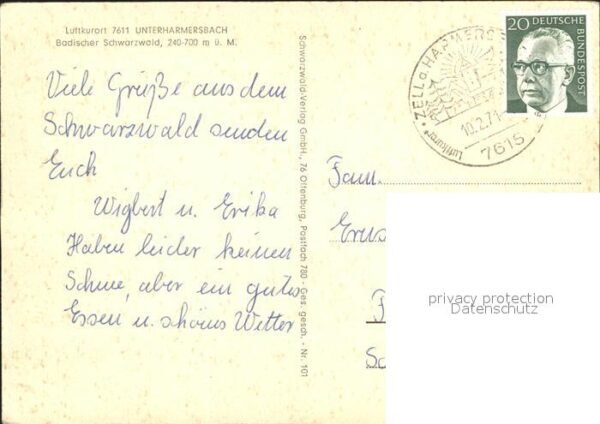 Luftkurort 7611 UNTERHARMERSBACH
Badischer Schwarzwald, 240-700 m ü. M.
Viele Grüße aus dem
Schwarzwald senden
Euch
Wigbert u. Erika
Haben leider keinen
Schnee, aber ein gutes
Essen u. schönes Wetter
Schwarzwald-Verlag GmbH., 76 Offenburg, Postfach 780 - Ges. gesch. - Nr. 101
20 DEUTSCHE
BUNDESPOST
ZELL a. HARMERS
10.2.71
7615
Luftkurort
Fam.
privacy protection
Datenschutz